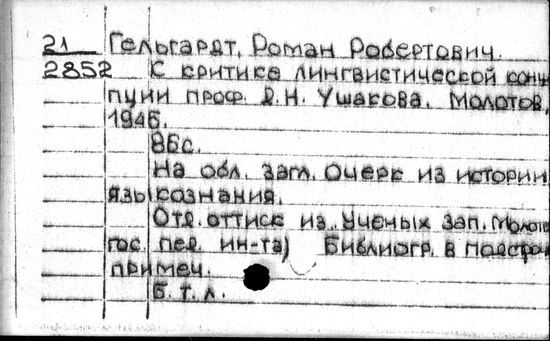 21 Гельгардт, Роман Робертович.
2852 К критике лингвистической конц
пции проф. Д.Н. Ушакова. Молотов,
1946.
86с.
На обл. загл. Очерк из истории
языкознания.
Отд. оттиск из „Ученых зап. Молото
гос. пед. ин-та) Библиогр. в подстроч
примеч.
Б. т. л.